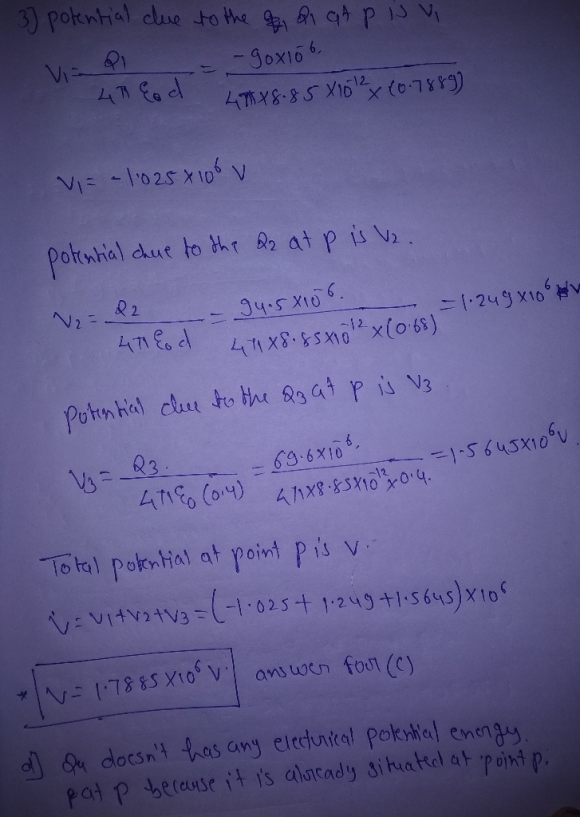 3) potential due to the Q1 at p is V1
V1 = Q1 / 4π ε0 d = -90×10^-6 / 4π×8.85×10^-12×(0.7889)
V1 = -1.025×10^6 V
potential due to the Q2 at p is V2.
V2 = Q2 / 4π ε0 d = 94.5×10^-6 / 4π×8.85×10^-12×(0.68) = 1.249×10^6 V
potential due to the Q3 at p is V3
V3 = Q3 / 4πε0 (0.4) = 69.6×10^-6 / 4π×8.85×10^-12×0.4 = 1.5645×10^6 V.
Total potential at point p is V.
V = V1+V2+V3 = (-1.025+1.249+1.5645)×10^6
* V = 1.7885×10^6 V. answer foor (c)
d] Q4 doesn't has any electurical potential energy.
at p because it is alrcady situated at point p.